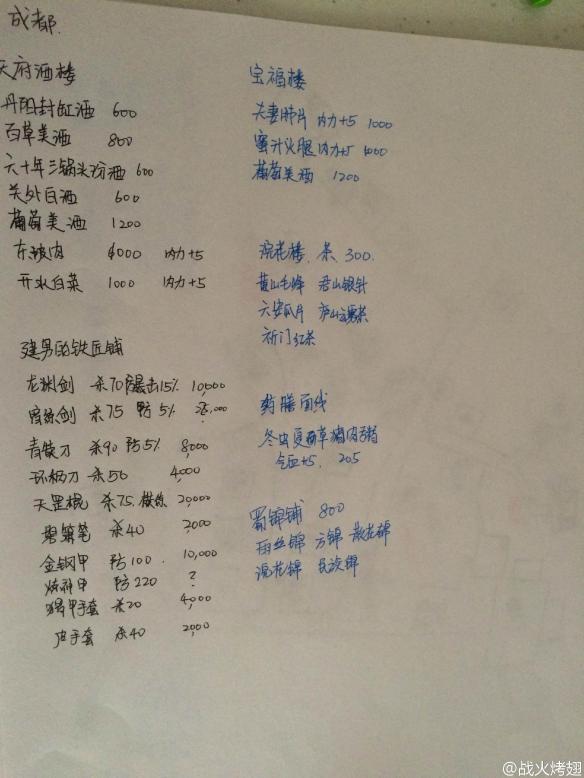 成都
天府酒楼
丹阳封缸酒 600
百草美酒 800
六十年三锅头汾酒 600
关外白酒 600
葡萄美酒 1200
东坡肉 4000 内力+5
开水白菜 1000 内力+5
建男的铁匠铺
龙渊剑 杀70 暴击15% 10,000
剑 杀75 防5% 000
青锋刀 杀90 防5% 8000
环柄刀 杀50 4,000
天罡棍 杀75. 20,000
碧箫笔 杀40 2,000
金钢甲 防100 10,000
炼神甲 防220 ?
猬甲手套 杀20 4,000
皮手套 杀40 2,000
宝福楼
夫妻肺片 内力+5 1000
蜜汁火腿 内力+5 1000
葡萄美酒 1200
浣花楼. 茶 300.
黄山毛峰 君山银针
六安瓜片 庐山云雾茶
祈门红茶
药膳面线
冬虫夏草猪肉粥
气血+5. 205
蜀锦铺 800
雨丝锦 方锦 散花锦
浣花锦 民族锦
@战火烤翅